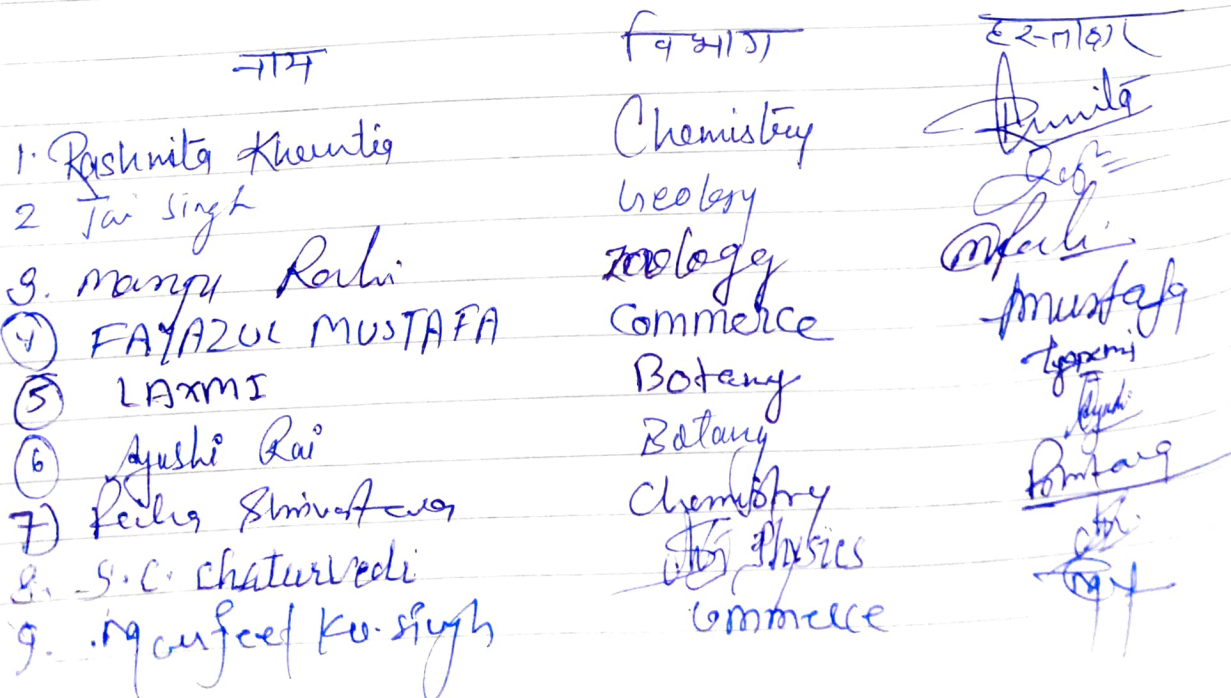 नाम विभाग हस्ताक्षर
1. Rashnita Khuntia Chemistry
2 Jai Singh Geology
3. Manju Rahi zoology
4) FAYAZUL MUSTAFA Commerce Mustafa
5 LAXMI Botany Laxmi
6 Ayushi Rai Botany Ayushi
7) Shrivastava Chemistry
8. S.C. Chaturvedi Physics
9. Ku. Singh Commerce